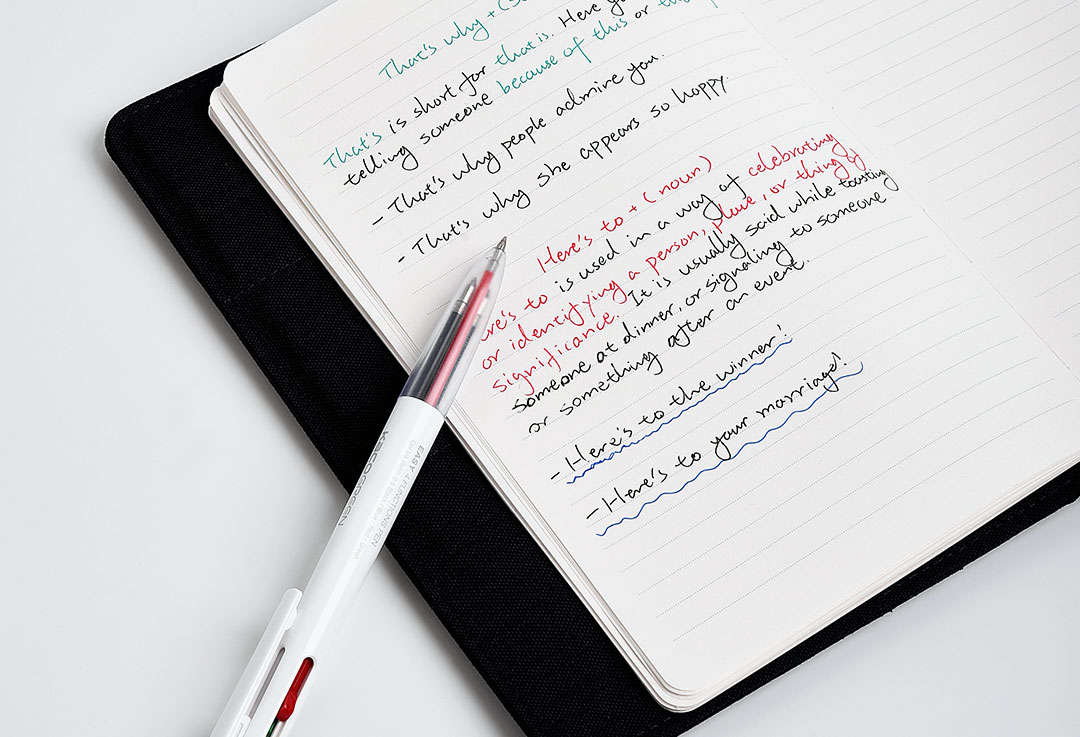 That's why + (S
That's is short for that is. Here
telling someone because of this or
- That's why people admire you.
- That's why she appears so happy
Here's to + (noun)
ere's to is used in a way of celebrating
or identifying a person, place, or thing of
significance. It is usually said while toasting
someone at dinner, or signaling to someone
or something after an event.
- Here's to the winner!
- Here's to your marriage!
KACOGREEN
EASY 4 FUNCTIONS PEN